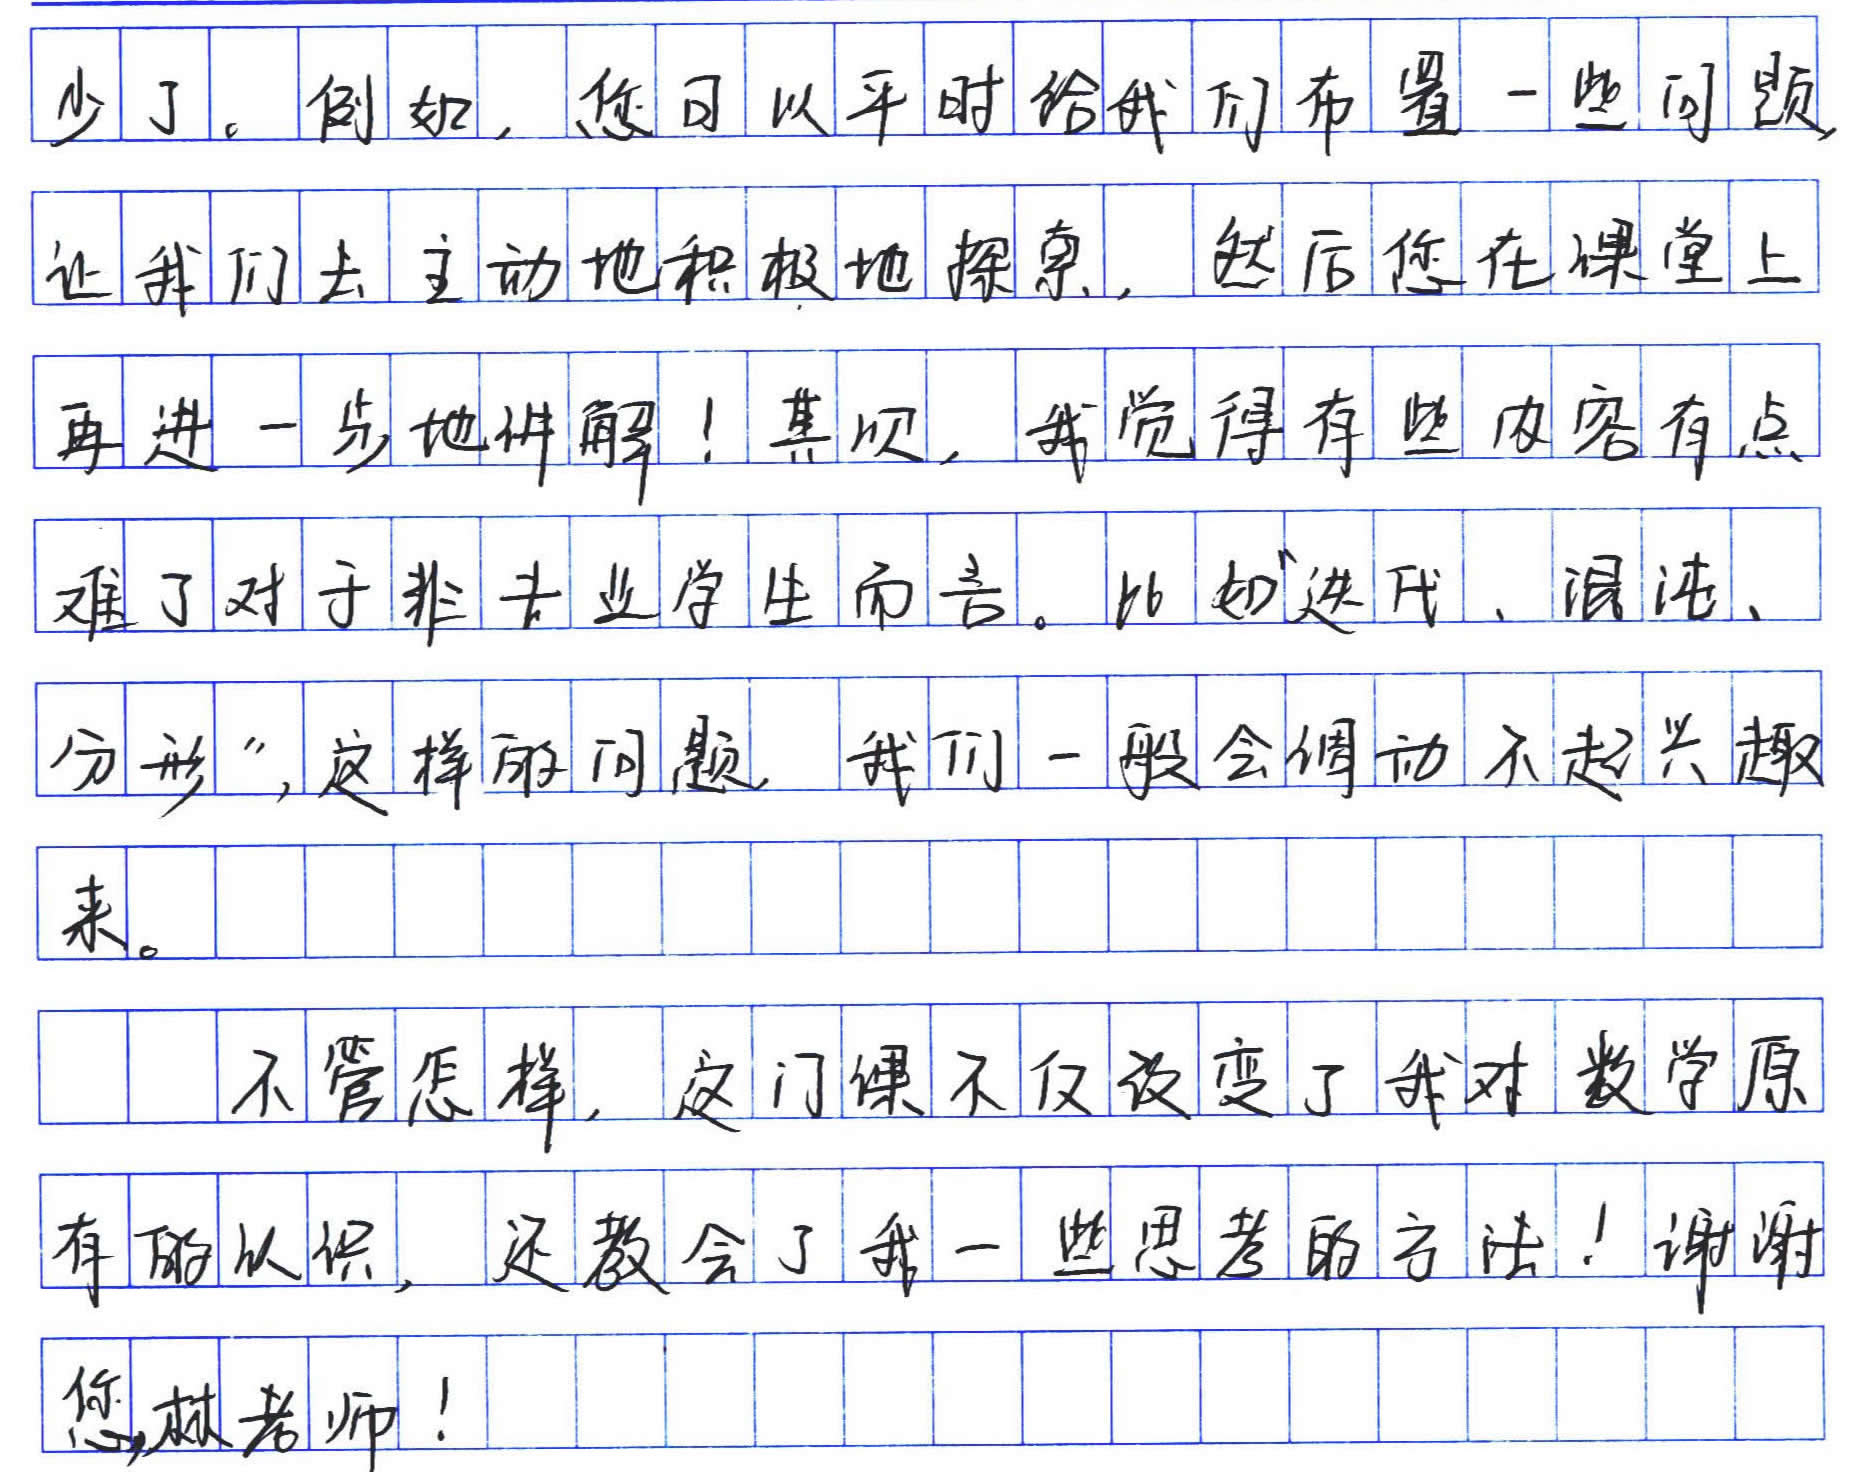 少了。例如,您可以平时给我们布置一些问题,
让我们去主动地积极地探索,然后您在课堂上
再进一步地讲解!其次,我觉得有些内容有点
难了对于非专业学生而言。比如“迭代、混沌、
分形”,这样的问题,我们一般会调动不起兴趣
来。
不管怎样,这门课不仅改变了我对数学原
有的认识,还教会了我一些思考的方法!谢谢
您,林老师!